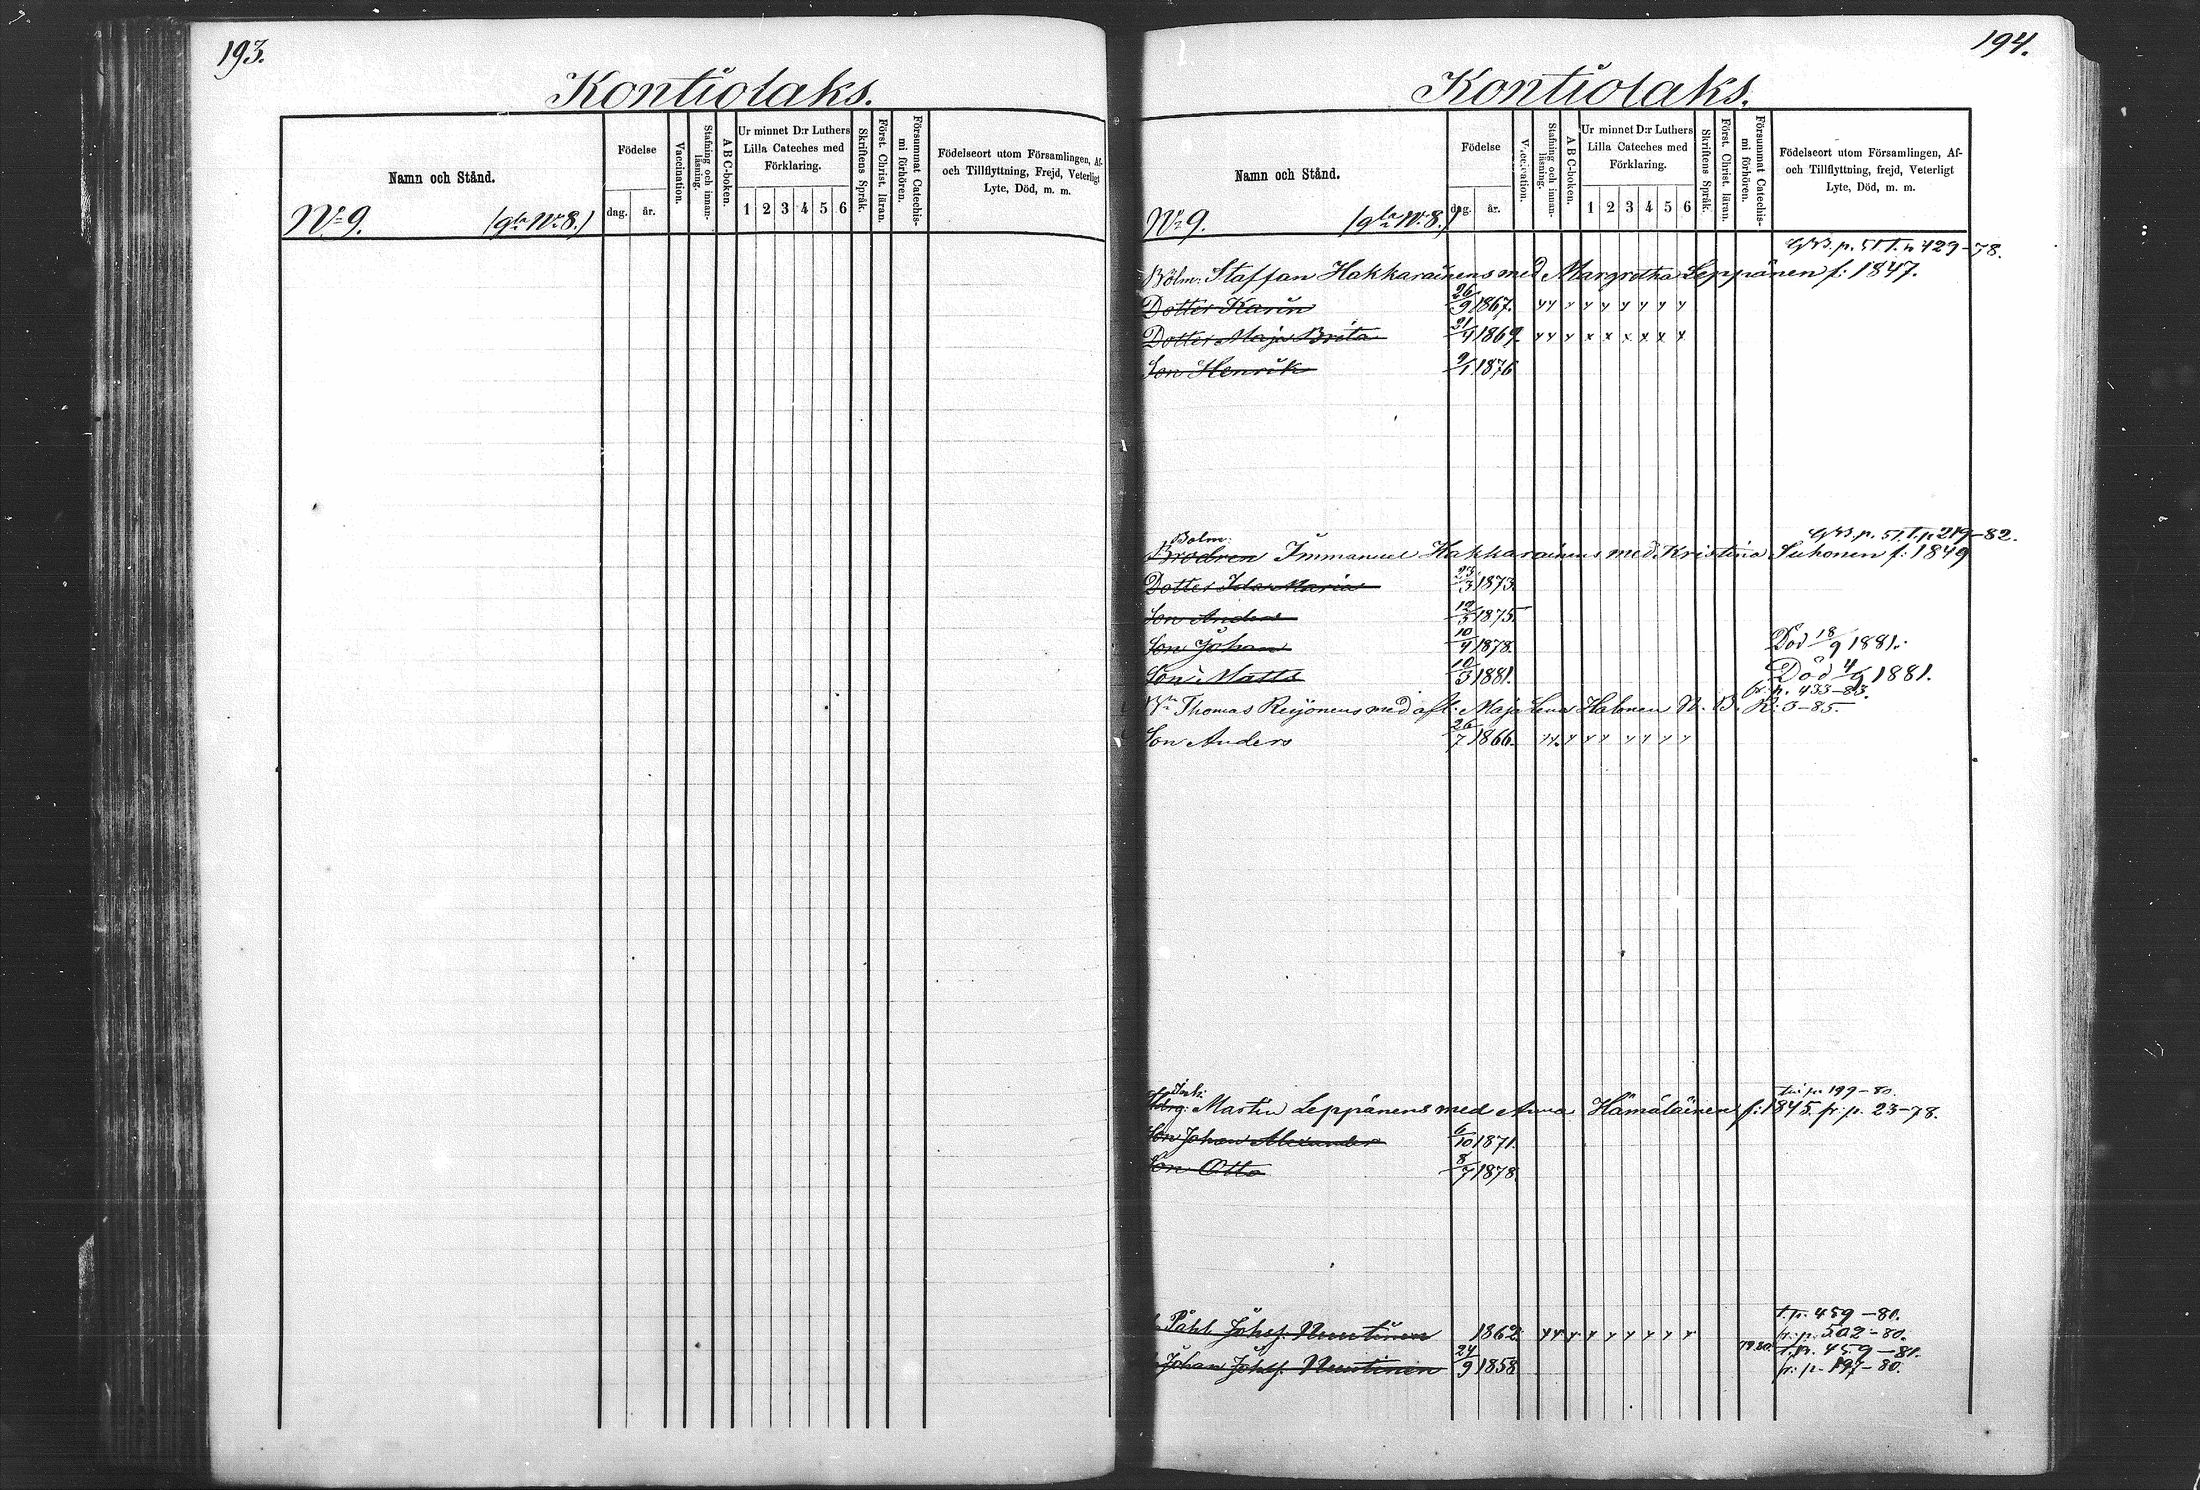 193.
Kontiolaks.
Namn och Stånd.
Födelse
dag.
år.
Vaccination.
Stafning och innan-
läsning.
A B C-boken.
Ur minnet D:r Luthers
Lilla Cateches med
Förklaring.
1 2 3 4 5 6
Skriftens Språk.
Först. Christ. läran.
Försummat Catechis-
mi förhören.
Födelseort utom Församlingen, Af-
och Tillflyttning, Frejd, Veterligt
Lyte, Död, m. m.
No 9. (gla No 8.)
194.
Kontiolaks.
Namn och Stånd.
Födelse
dag.
år.
Vaccination.
Stafning och innan-
läsning.
A B C-boken.
Ur minnet D:r Luthers
Lilla Cateches med
Förklaring.
1 2 3 4 5 6
Skriftens Språk.
Först. Christ. läran.
Försummat Catechis-
mi förhören.
Födelseort utom Församlingen, Af-
och Tillflyttning, frejd, Veterligt
Lyte, Död, m. m.
No 9. (gla No 8.)
p. 51 t. p. 429-78.
Bolm: Staffan Hakkarainens med Margretha Leppänen f: 1847.
Dotter Karin 26/9 1867.
Dotter Maja Brita 21/4 1869
Son Henrik 9/1 1876
p. 51. t. p. 219-82.
Bolm:
Brodren Immanuel Hakkarainens med Kristina Suhonen f: 1849
Dotter Ida Maria 23/3 1873.
Son Anders 12/5 1875
Son Johan 10/4 1878. Död 18/9 1881.
Son Matts 10/3 1881. Död 4/9 1881.
fr. p. 433-83.
Thomas Reijonens med afl: Maja Lena Halonen N. B. K: 3-85.
Son Anders 26/7 1866.
till p. 199-80.
Martin Leppänens med Anna Hämäläinen f: 1845. fr. p. 23-78.
Son Johan Alexander 6/10 1871.
Son Otto 8/7 1878.
t. p. 459-80.
Påhl Johsf. Nuutinen 1862 fr: p. 502-80.
79.80. t. p. 459-81.
Johan Johsf. Nuutinen 24/9 1858 fr: p. 197-80.